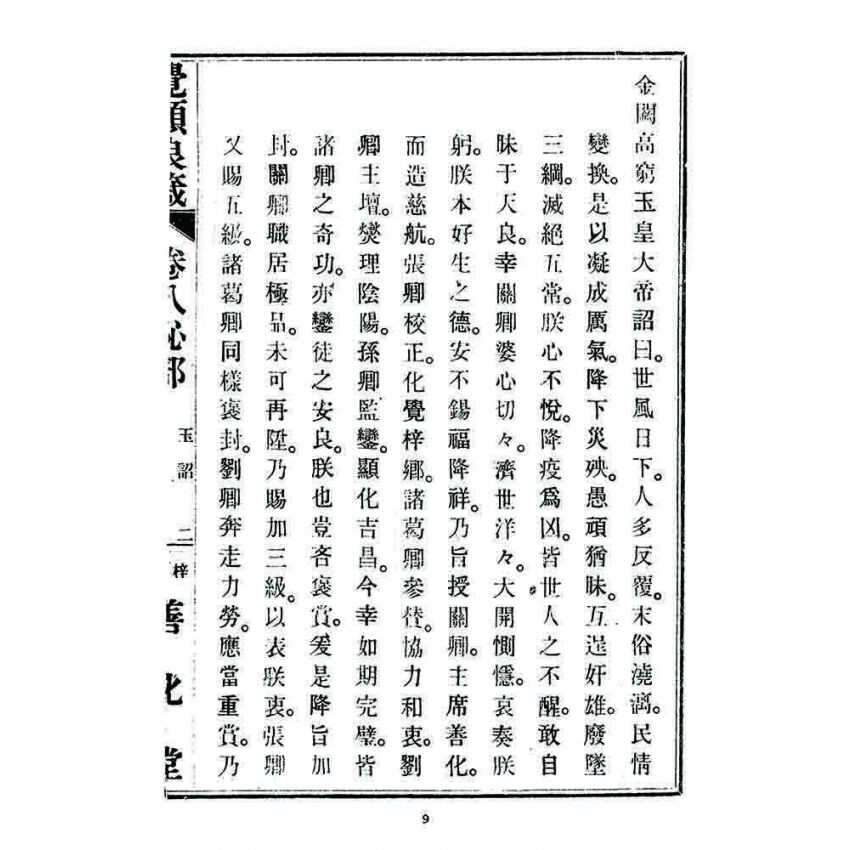 金闕高窮玉皇大帝詔曰。世風日下。人多反覆。末俗澆漓。民情
變換。是以凝成厲氣。降下災殃。愚頑猶昧。互逞奸雄。廢墜
三綱。滅絕五常。朕心不悅。降疫為凶。皆世人之不醒。敢自
昧于天良。幸關卿婆心切々。濟世洋々。大開惻隱。哀奏朕
躬。朕本好生之德。安不錫福降祥。乃旨授關卿。主席善化。
而造慈航。張卿校正。化覺梓鄉。諸葛卿參贊。協力和衷。劉
卿主壇。燮理陰陽。孫卿監鸞。顯化吉昌。今幸如期完璧。皆
諸卿之奇功。亦鸞徒之安良。朕也豈吝褒賞。爰是降旨加
封。關卿職居極品。未可再陞。乃賜加三級。以表朕衷。張卿
又賜五級。諸葛卿同樣褒封。劉卿奔走力勞。應當重賞。乃
覺頑良箴 卷八 必部 玉詔 二 梓 善化堂
9